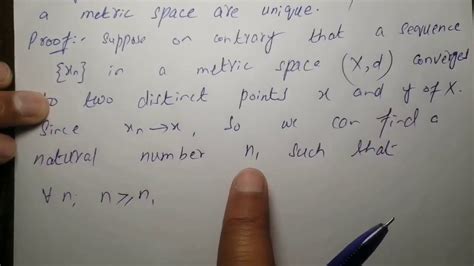 a metric space are unique.
Proof:- Suppose on contrary that a sequence
{xn} in a metric space (X,d) converges
to two distinct points x and y of X.
Since xn→x, So we can find a
natural number n1 such that
∀ n, n≥n1